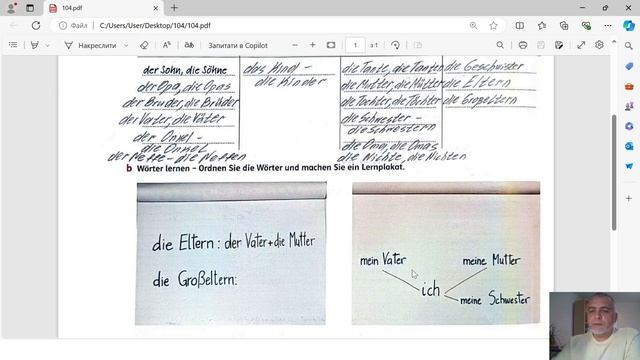 104.pdf
Файл
C:/Users/User/Desktop/104/104.pdf
Накреслити
Запитати в Copilot
1
з 1
der Sohn, die Söhne
das Kind -
die Kinder
der Opa, die Opas
der Bruder, die Brüder
der Vater, die Väter
der Onkel -
die Onkel
der Neffe - die Neffen
die Tante, die Tanten
die Mutter, die Mütter
die Tochter, die Töchter
die Schwester -
die Schwestern
die Oma, die Omas
die Nichte, die Nichten
die Geschwister
die Eltern
die Großeltern
b Wörter lernen – Ordnen Sie die Wörter und machen Sie ein Lernplakat.
die Eltern: der Vater + die Mutter
die Großeltern:
mein Vater
meine Mutter
ich
meine Schwester